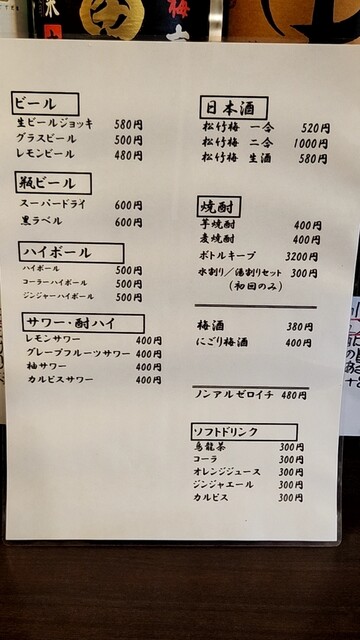 ビール
生ビールジョッキ 580円
グラスビール 500円
レモンビール 480円
瓶ビール
スーパードライ 600円
黒ラベル 600円
ハイボール
ハイボール 500円
コーラーハイボール 500円
ジンジャーハイボール 500円
サワー・酎ハイ
レモンサワー 400円
グレープフルーツサワー 400円
柚サワー 400円
カルピスサワー 400円
日本酒
松竹梅 一合 520円
松竹梅 二合 1000円
松竹梅 生酒 580円
焼酎
芋焼酎 400円
麦焼酎 400円
ボトルキープ 3200円
水割り/湯割りセット 300円
(初回のみ)
梅酒 380円
にごり梅酒 400円
ノンアルゼロイチ 480円
ソフトドリンク
烏龍茶 300円
コーラ 300円
オレンジジュース 300円
ジンジャエール 300円
カルピス 300円